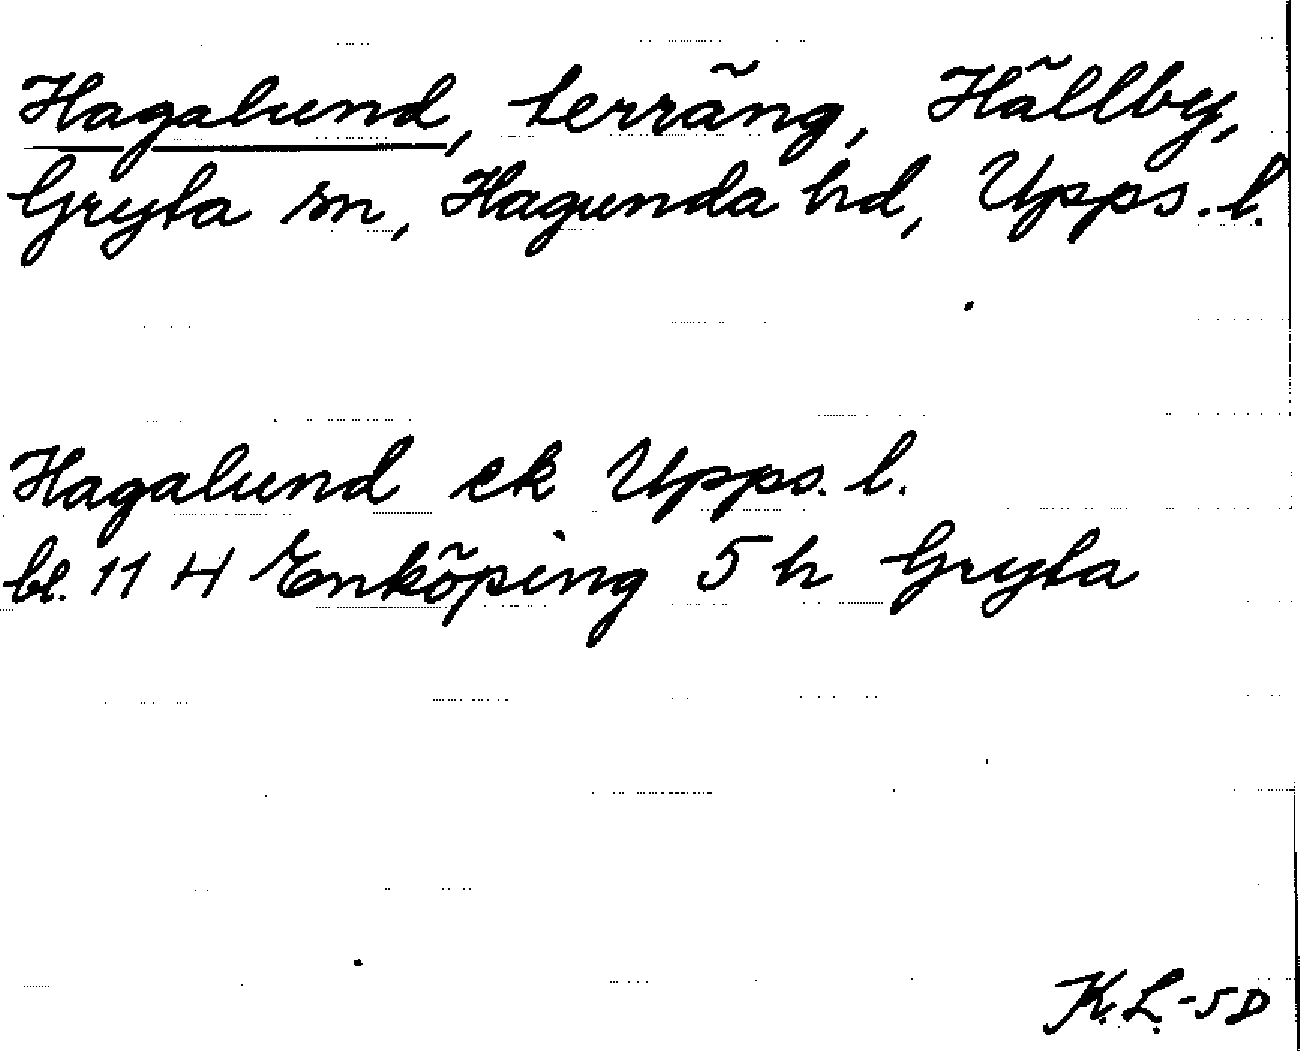 Hagalund, terräng, Hällby,
Gryta sn, Hagunda hd, Upps. l.
Hagalund ek Upps. l.
bl. 11 H Enköping 5 h Gryta
K.L.-5D